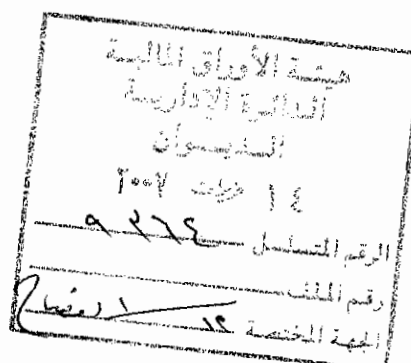 هيئة الأوراق المالية
الدائرة الإدارية
الديوان
١٤ ٢٠٠٧
الرقم المتسلسل ٩٢٦٤
رقم الملف
الجهة المختصة